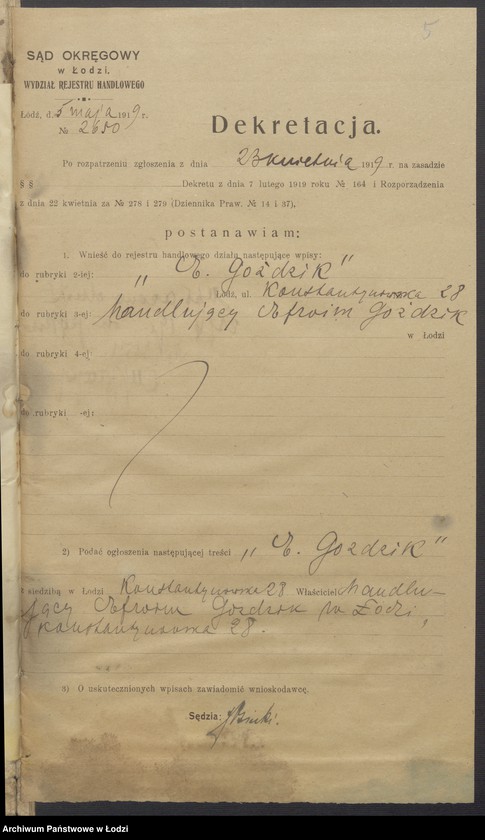 5
SĄD OKRĘGOWY
w Łodzi.
WYDZIAŁ REJESTRU HANDLOWEGO
Łódź, d. 5 maja 1919 r.
№ 2650
Dekretacja.
Po rozpatrzeniu zgłoszenia z dnia 23 kwietnia 1919 r. na zasadzie
§ § Dekretu z dnia 7 lutego 1919 roku № 164 i Rozporządzenia
z dnia 22 kwietnia za № 278 i 279 (Dziennika Praw. № 14 i 37),
postanawiam:
1. Wnieść do rejestru handlowego działu następujące wpisy:
do rubryki 2-iej: „E. Goździk”
Łódź, ul. Konstantynowska 28
do rubryki 3-ej: handlujący Efroim Goździk
w Łodzi
do rubryki 4-ej:
do rubryki -ej:
2) Podać ogłoszenia następującej treści „E. Gozdzik”
z siedzibą w Łodzi Konstantynowska 28 Właściciel handlu-
jący Efroim Gozdzik w Łodzi,
Konstantynowska 28.
3) O uskutecznionych wpisach zawiadomić wnioskodawcę.
Sędzia:
Archiwum Państwowe w Łodzi